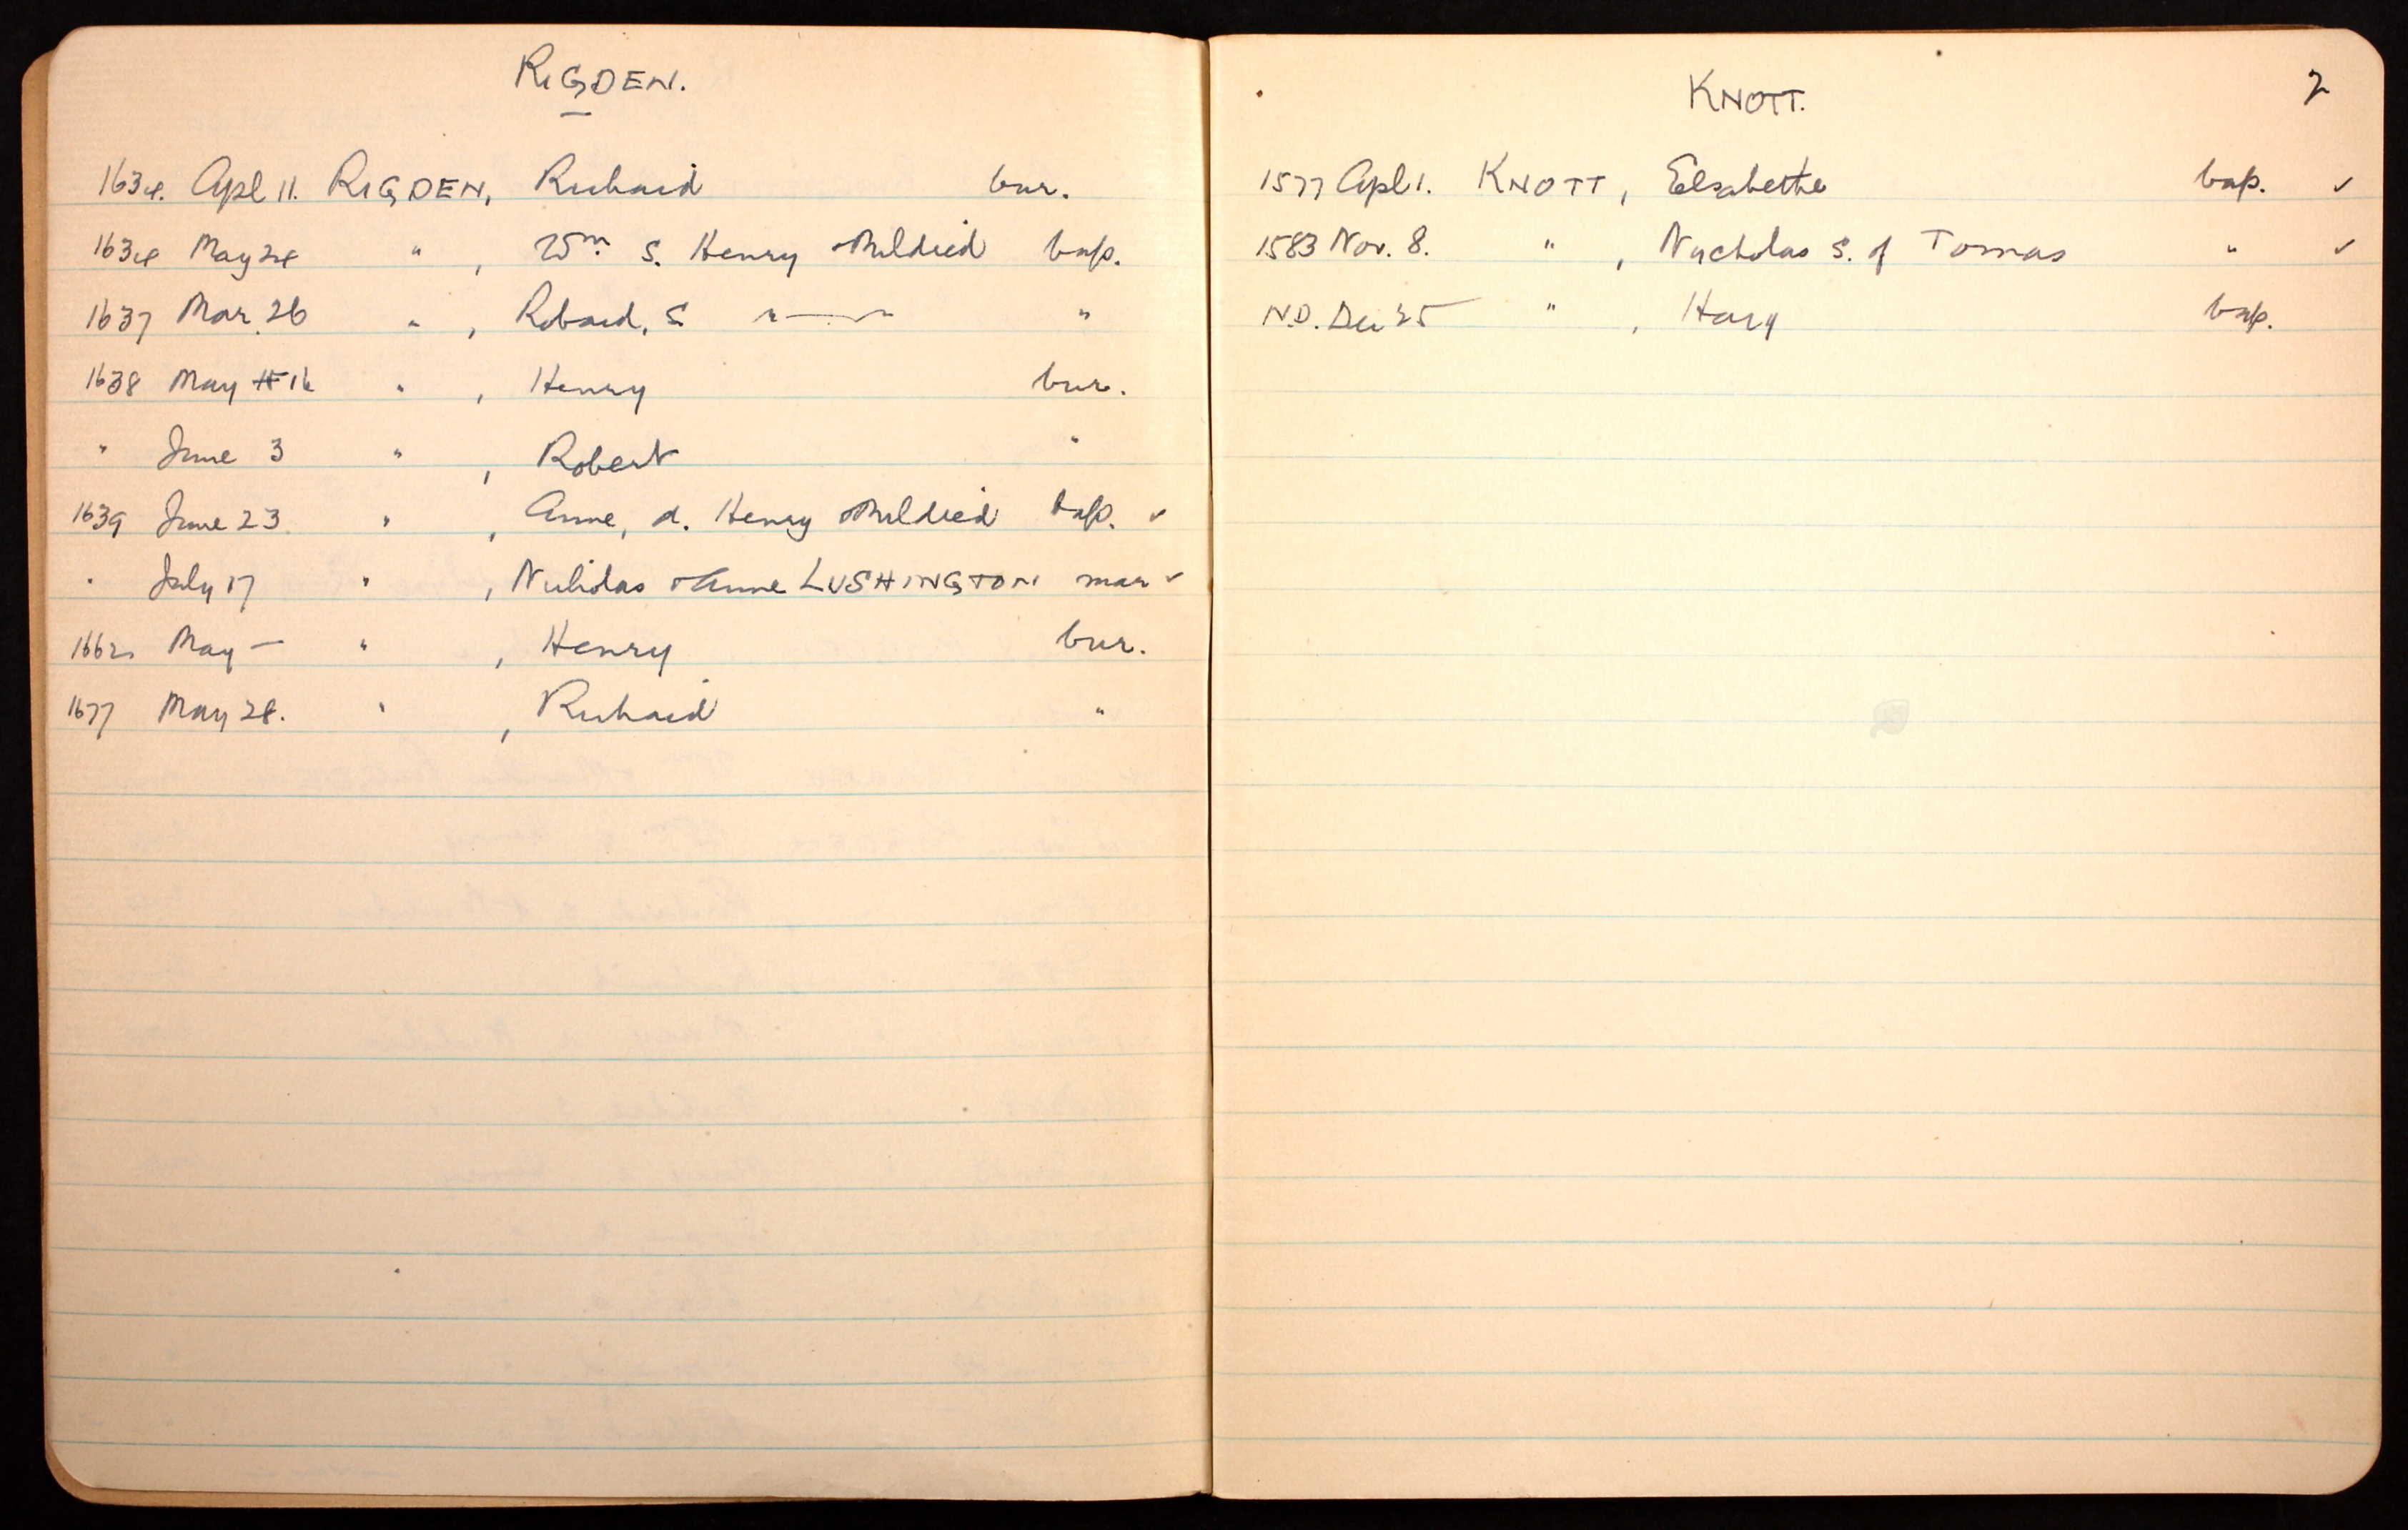 RIGDEN.
1634. Apl 11. RIGDEN, Richard bur.
1634 May 24 " , Wm S. Henry + Mildred bap.
1637 Mar. 26 " , Robard, S " — " "
1638 May 16 " , Henry bur.
" June 3 " , Robert "
1639 June 23. " , Anne, d. Henry + Mildred bap. ✓
" July 17 " , Nicholas + Anne LUSHINGTON mar ✓
1662 May — " , Henry bur.
1677 May 28. " , Richard "
KNOTT. 2
1577 Apl 1. KNOTT, Elsabethe bap. ✓
1583 Nov. 8. " , Nycholas S. of Tomas " ✓
N.D. Dec 25 " , Hary bap.